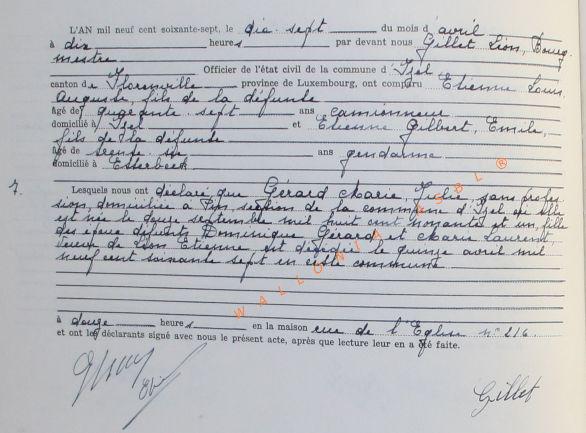 L'AN mil neuf cent soixante-sept, le dix sept du mois d'avril
à dix heures par devant nous Gillet Léon, Bourg-
mestre
Officier de l'état civil de la commune d'Izel
canton de Florenville province de Luxembourg, ont comparu Etienne Louis
Auguste, fils de la défunte
âgé de quarante sept ans camionneur
domicilié à Izel et Etienne Gilbert, Emile,
fils de la défunte
âgé de trente six ans gendarme
domicilié à Etterbeek
7. Lesquels nous ont déclaré que Gérard Marie, Julie sans profes
sion, domiciliée à Pin, section de la commune d'Izel où elle
est née le douze septembre mil huit cent nonante et un fille
des époux défunts Dominique Gérard et Marie Laurent,
veuve de Léon Etienne est décédée le quinze avril mil
neuf cent soixante sept en cette commune
à douze heures en la maison rue de l'Eglise n° 216
et ont les déclarants signé avec nous le présent acte, après que lecture leur en a été faite.
Gillet
WALLONIA ASBL ®